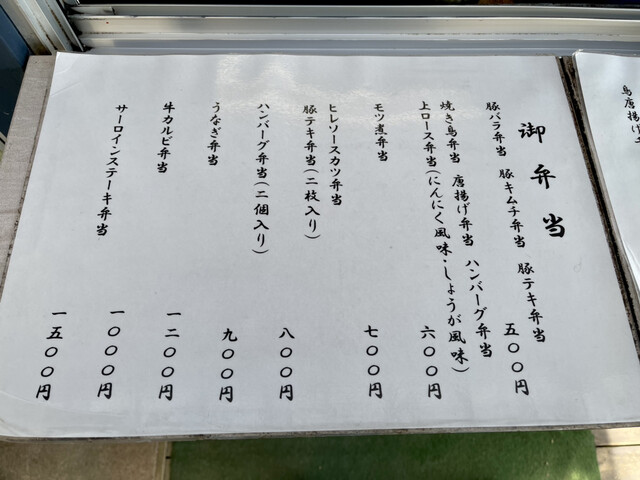 御弁当
豚バラ弁当 豚キムチ弁当 豚テキ弁当 五〇〇円
焼き鳥弁当 唐揚げ弁当 ハンバーグ弁当
上ロース弁当(にんにく風味・しょうが風味) 六〇〇円
モツ煮弁当 七〇〇円
ヒレソースカツ弁当
豚テキ弁当(二枚入り)
ハンバーグ弁当(二個入り) 八〇〇円
うなぎ弁当 九〇〇円
牛カルビ弁当 一二〇〇円
サーロインステーキ弁当 一〇〇〇円
一五〇〇円
鳥唐揚げ